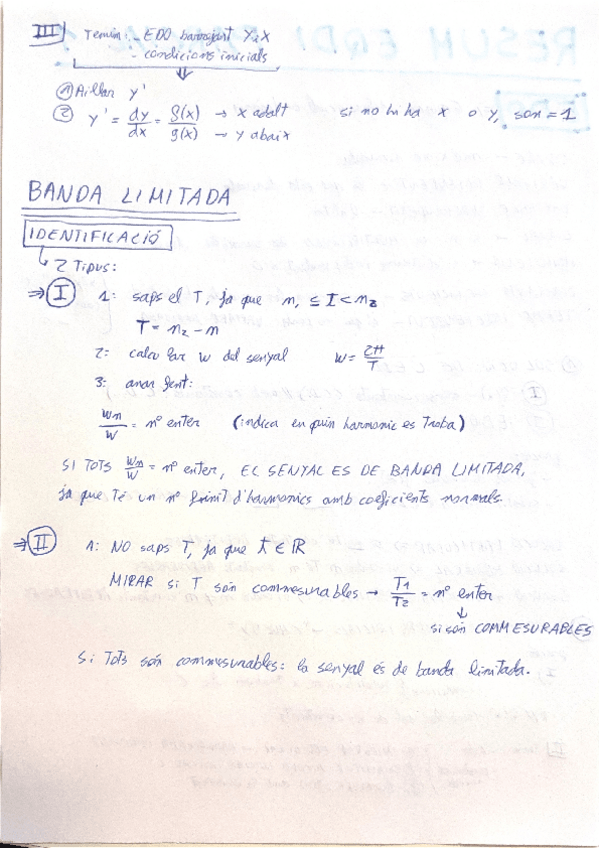 III Tenim: - EDO barrejant Y, X
- condicions inicials
① Aïllar y'
② y' = dy/dx = f(x)/g(x) → x adalt → y abaix si no hi ha x o y, son = 1
BANDA LIMITADA
IDENTIFICACIÓ
2 Tipus:
⇒ I 1: saps el T, ja que n₁ ≤ t < n₂
T = n₂ - n₁
2: calcular w del senyal w = 2π/T
3: anar fent:
wn/w = nº enter (indica en quin harmonic es troba)
SI TOTS wn/w = nº enter, EL SENYAL ES DE BANDA LIMITADA,
ja que té un nº finit d'harmonics amb coeficients normals.
⇒ II 1: NO saps T, ja que t ∈ ℝ
MIRAR si T són commesurables → T1/T2 = nº enter
↓
si són COMMESURABLES
Si Tots són commesurables: la senyal és de banda limitada.